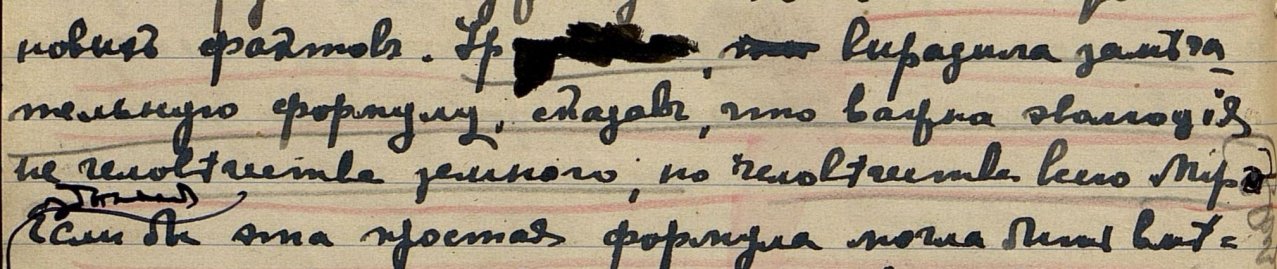 новыхъ фактовъ. Ур , выразила замѣча
тельную формулу, сказавъ, что важна эволюція
не человѣчества земного, но человѣчества всего Міра
Если бы эта простая формула могла быть вмѣ=